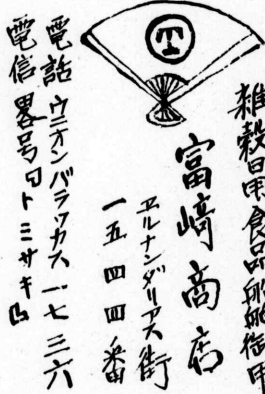 雑穀日用食品船舶御用
富崎商店
エルナンダリアス街
一五四四番
電話 ウニオンバラッカス一七三六
電信畧号「トミサキ」